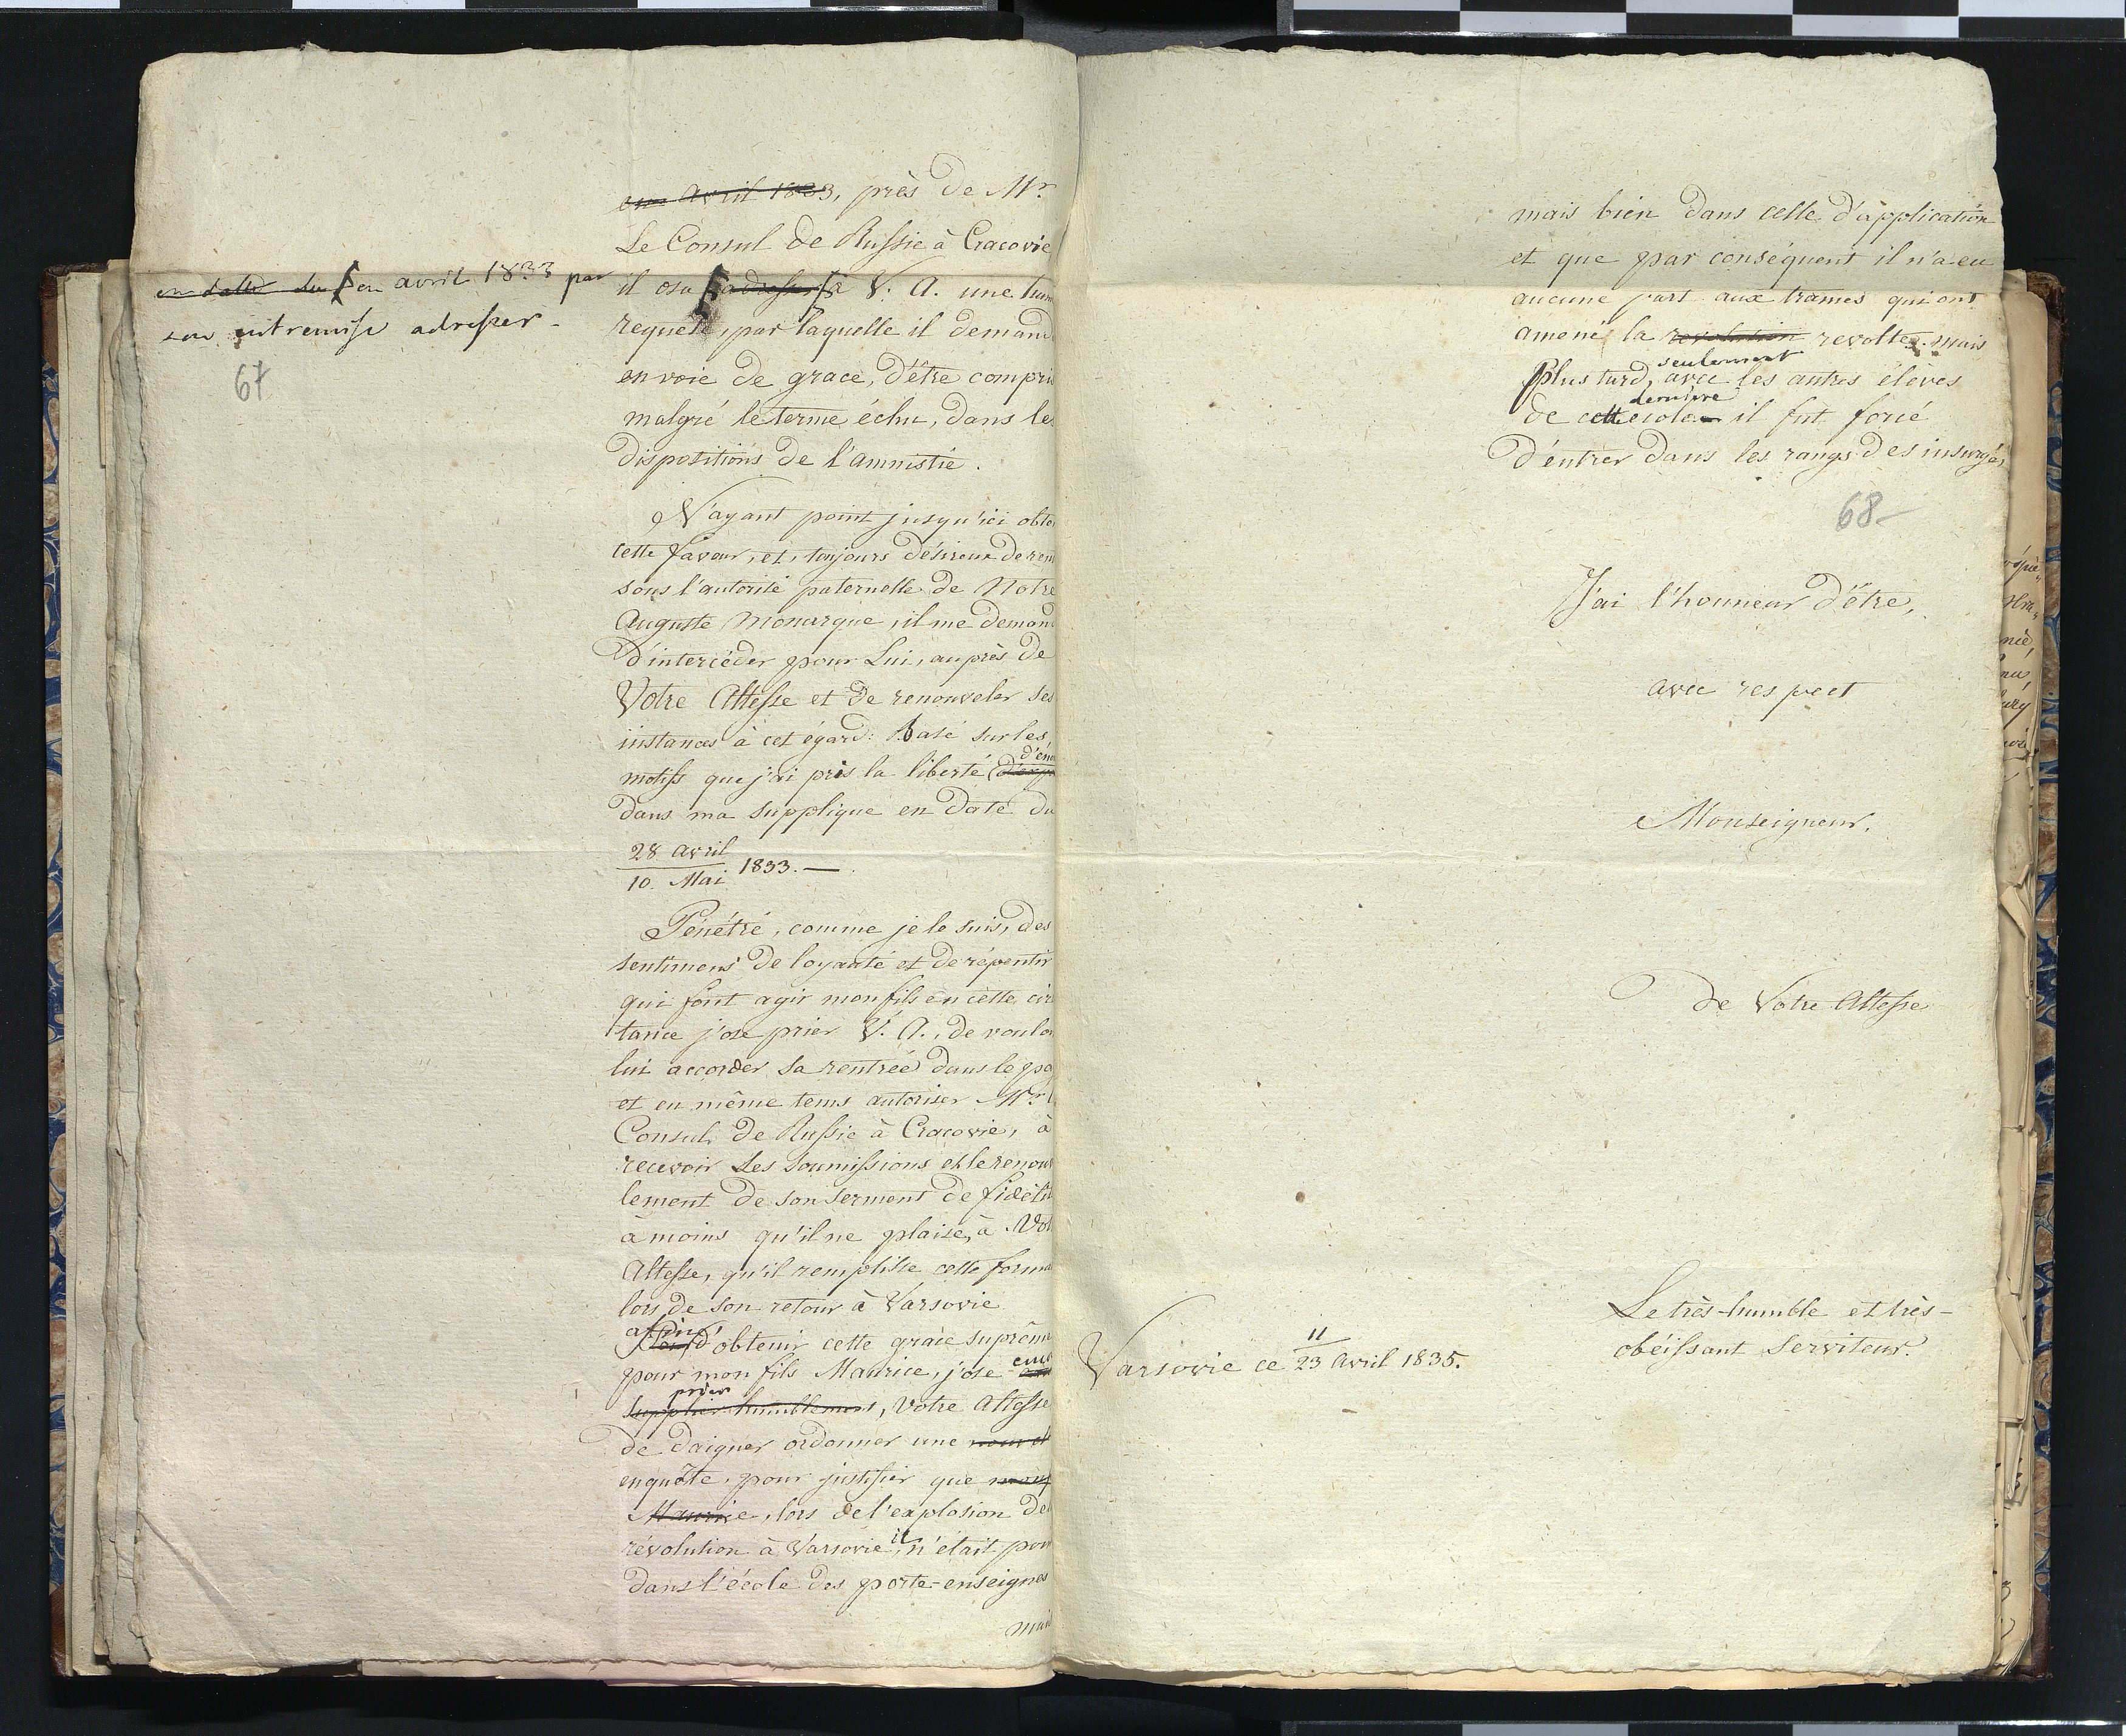 en avril 1833, près de Mr.
Le Consul de Russie à Cracovie
en date du en avril 1833 par
son entremise adresser.
67
il osa adresser à V. A. une hum
requete, par laquelle il demand
en voie de grace, d'être compris
malgré le terme échu, dans les
dispositions de l'amnistie.
N'ayant point jusqu'ici obte
cette faveur, et, toujours désireux de ren
sous l'autorité paternelle de Notre
Auguste Monarque, il me demand
d'intercéder pour Lui, auprès de
Votre Altesse et de renouveler ses
instances à cet égard: Basé sur les
d'éno
motifs que j'ai pris la liberté d'exp
dans ma supplique en date du
28 avril
10. Mai 1833. —
Pénétré, comme je le suis, des
sentimens de loyauté et de répentir
qui font agir mon fils en cette circ
tance j'ose prier V. A., de voulo
lui accorder sa rentrée dans le pa
et en même tems autoriser Mr. l
Consul de Russie à Cracovie, à
recevoir ses soumissions et le renou
lement de son serment de fidélit
à moins qu'il ne plaise, à Vot
Altesse, qu'il remplisse cette forma
lors de son retour à Varsovie
afin
d'obtenir cette grace suprême
pour mon fils Maurice, j'ose
prier
supplier humblement, Votre Altesse
de daigner ordonner une nouvel
enquête, pour justifier que
Maurice, lors de l'explosion de
révolution à Varsovie, il n'était poin
dans l'école des porte-enseignes
mais
mais bien dans celle d'application
et que par conséquent il n'a eu
aucune part aux trames qui ont
amené la revolution revolte. mais
seulement
Plus tard, avec les autres élèves
dernière
de cette ecole il fut forcé
d'éntrer dans les rangs des insurgés,
68
J'ai l'honneur d'être,
avec respect
Monseigneur,
De Votre Altesse
Le très-humble et très-
obéissant Serviteur.
11
Varsovie ce 23 Avril 1835.